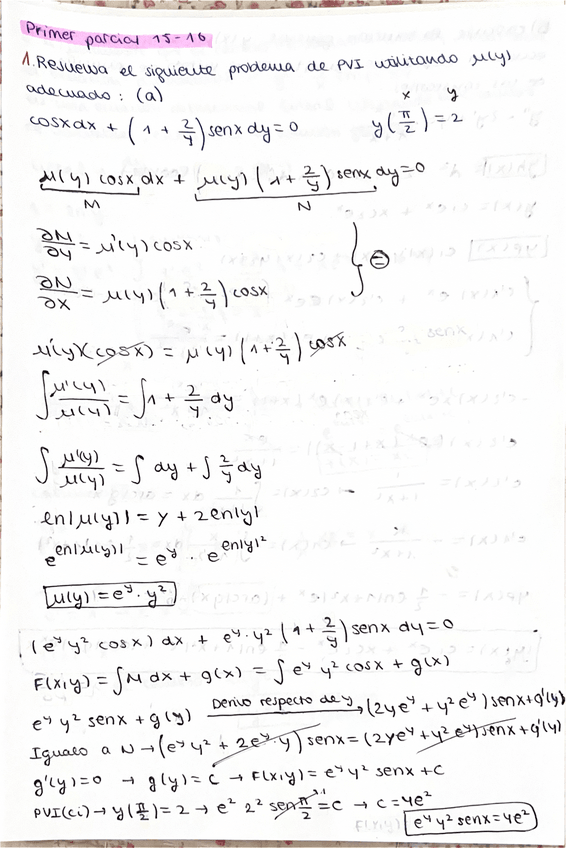 Primer parcial 15-16
1. Resuelva el siguiente problema de PVI utilizando μ(y)
adecuado: (a)
cosx dx + (1 + 2/y) senx dy = 0     y(π/2) = 2     x     y
μ(y) cosx dx + μ(y) (1 + 2/y) senx dy = 0
M     N
∂M/∂y = μ'(y) cosx
∂N/∂x = μ(y) (1 + 2/y) cosx     } =
μ'(y)(cosx) = μ(y) (1 + 2/y) cosx
∫ μ'(y)/μ(y) = ∫ 1 + 2/y dy
∫ μ'(y)/μ(y) = ∫ dy + ∫ 2/y dy
ln|μ(y)| = y + 2ln|y|
e^ln|μ(y)| = e^y · e^ln|y|^2
μ(y) = e^y · y^2
(e^y y^2 cosx) dx + e^y · y^2 (1 + 2/y) senx dy = 0
F(x,y) = ∫ M dx + g(x) = ∫ e^y y^2 cosx + g(x)
e^y y^2 senx + g(y) Derivo respecto de y → (2ye^y + y^2 e^y) senx + g'(y)
Igualo a N → (e^y y^2 + 2e^y · y) senx = (2ye^y + y^2 e^y) senx + g'(y)
g'(y) = 0 → g(y) = C → F(x,y) = e^y y^2 senx + C
PVI(ci) → y(π/2) = 2 → e^2 2^2 sen π/2 = C → C = 4e^2     1
F(x,y)     e^y y^2 senx = 4e^2